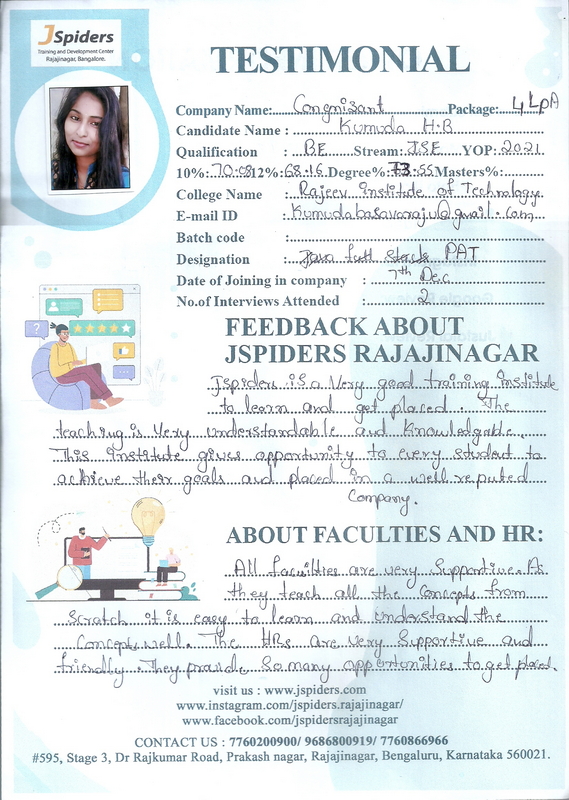 JSpiders
Training and Development Center
Rajajinagar, Bangalore.
TESTIMONIAL
Company Name: Congnisant Package: 4 LPA
Candidate Name : Kumuda H.B
Qualification : BE Stream: ISE YOP: 2021
10%: 70.08 12%: 68.16 Degree%: 73.55 Masters%:
College Name : Rajeev Institute of Technology
E-mail ID : Kumudabasavaraju@gmail.com
Batch code :
Designation : Java full stack PAT
Date of Joining in company : 7th Dec
No.of Interviews Attended : 2
FEEDBACK ABOUT
JSPIDERS RAJAJINAGAR
Jspiders is a very good training institute
to learn and get placed. The
teaching is very understandable and knowledgable.
This institute gives opportunity to every student to
achieve their goals and placed in a well reputed
Company.
ABOUT FACULTIES AND HR:
All faculties are very Supportive. As
they teach all the Concepts from
Scratch it is easy to learn and understand the
Concepts well. The HRs are very Supportive and
friendly. They provide So many opportunities to get placed.
visit us : www.jspiders.com
www.instagram.com/jspiders.rajajinagar/
www.facebook.com/jspidersrajajinagar
CONTACT US : 7760200900/ 9686800919/ 7760866966
#595, Stage 3, Dr Rajkumar Road, Prakash nagar, Rajajinagar, Bengaluru, Karnataka 560021.